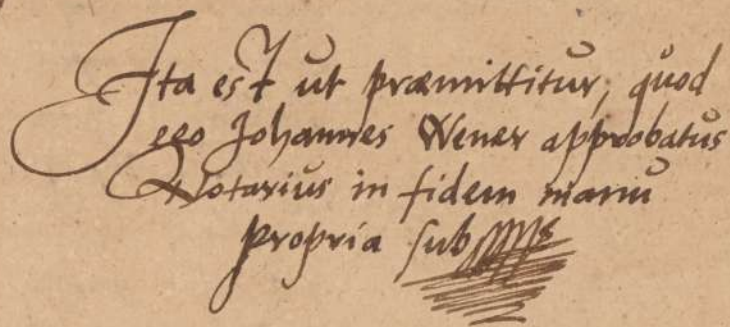 Ita est ut præmittitur, quod
ego Johannes Wener approbatus
Notarius in fidem manu
propria sub